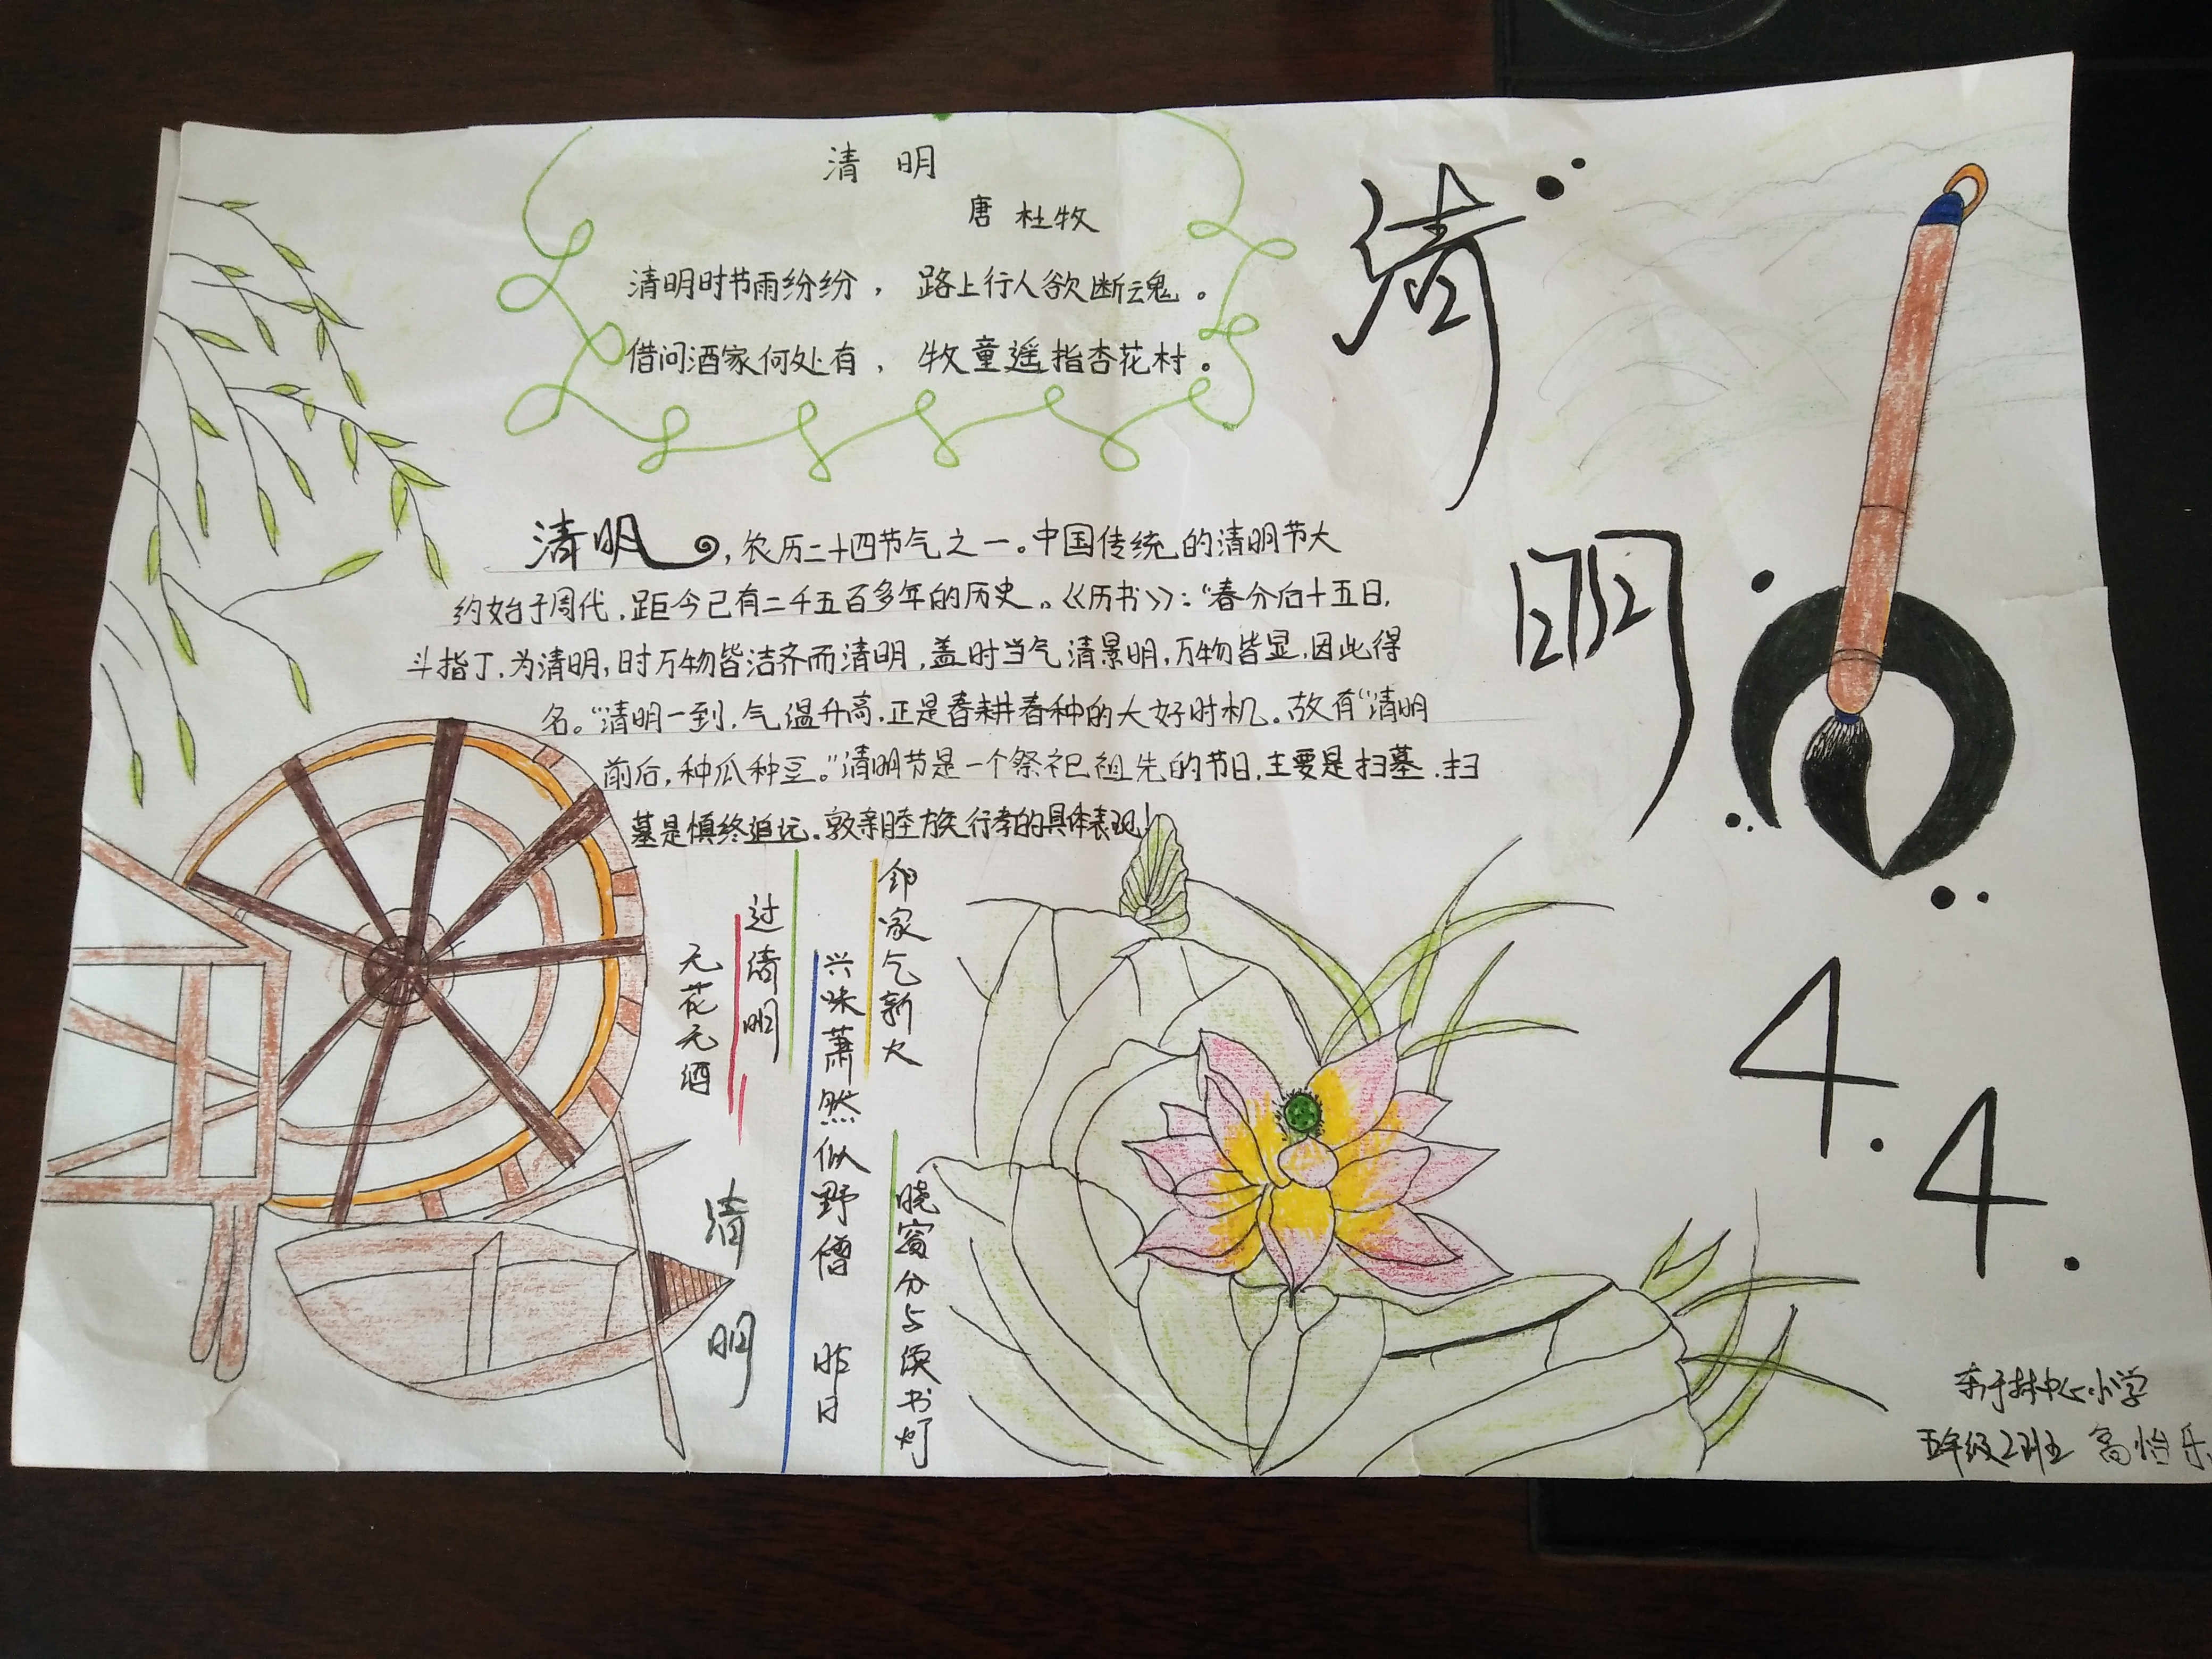 清 明
唐 杜牧
清明时节雨纷纷，路上行人欲断魂。
借问酒家何处有，牧童遥指杏花村。
清明，农历二十四节气之一。中国传统的清明节大
约始于周代，距今已有二千五百多年的历史。《历书》：“春分后十五日，
斗指丁，为清明，时万物皆洁齐而清明，盖时当气清景明，万物皆显，因此得
名。“清明一到，气温升高，正是春耕春种的大好时机。故有“清明
前后，种瓜种豆。”清明节是一个祭祀祖先的节日，主要是扫墓，扫
墓是慎终追远、敦亲睦族行孝的具体表现！
清 明
无花无酒
过清明
兴味萧然似野僧 昨日
邻家乞新火
晓窗分与读书灯
清
明
4.
4.
中心小学
五年级2班 高怡乐